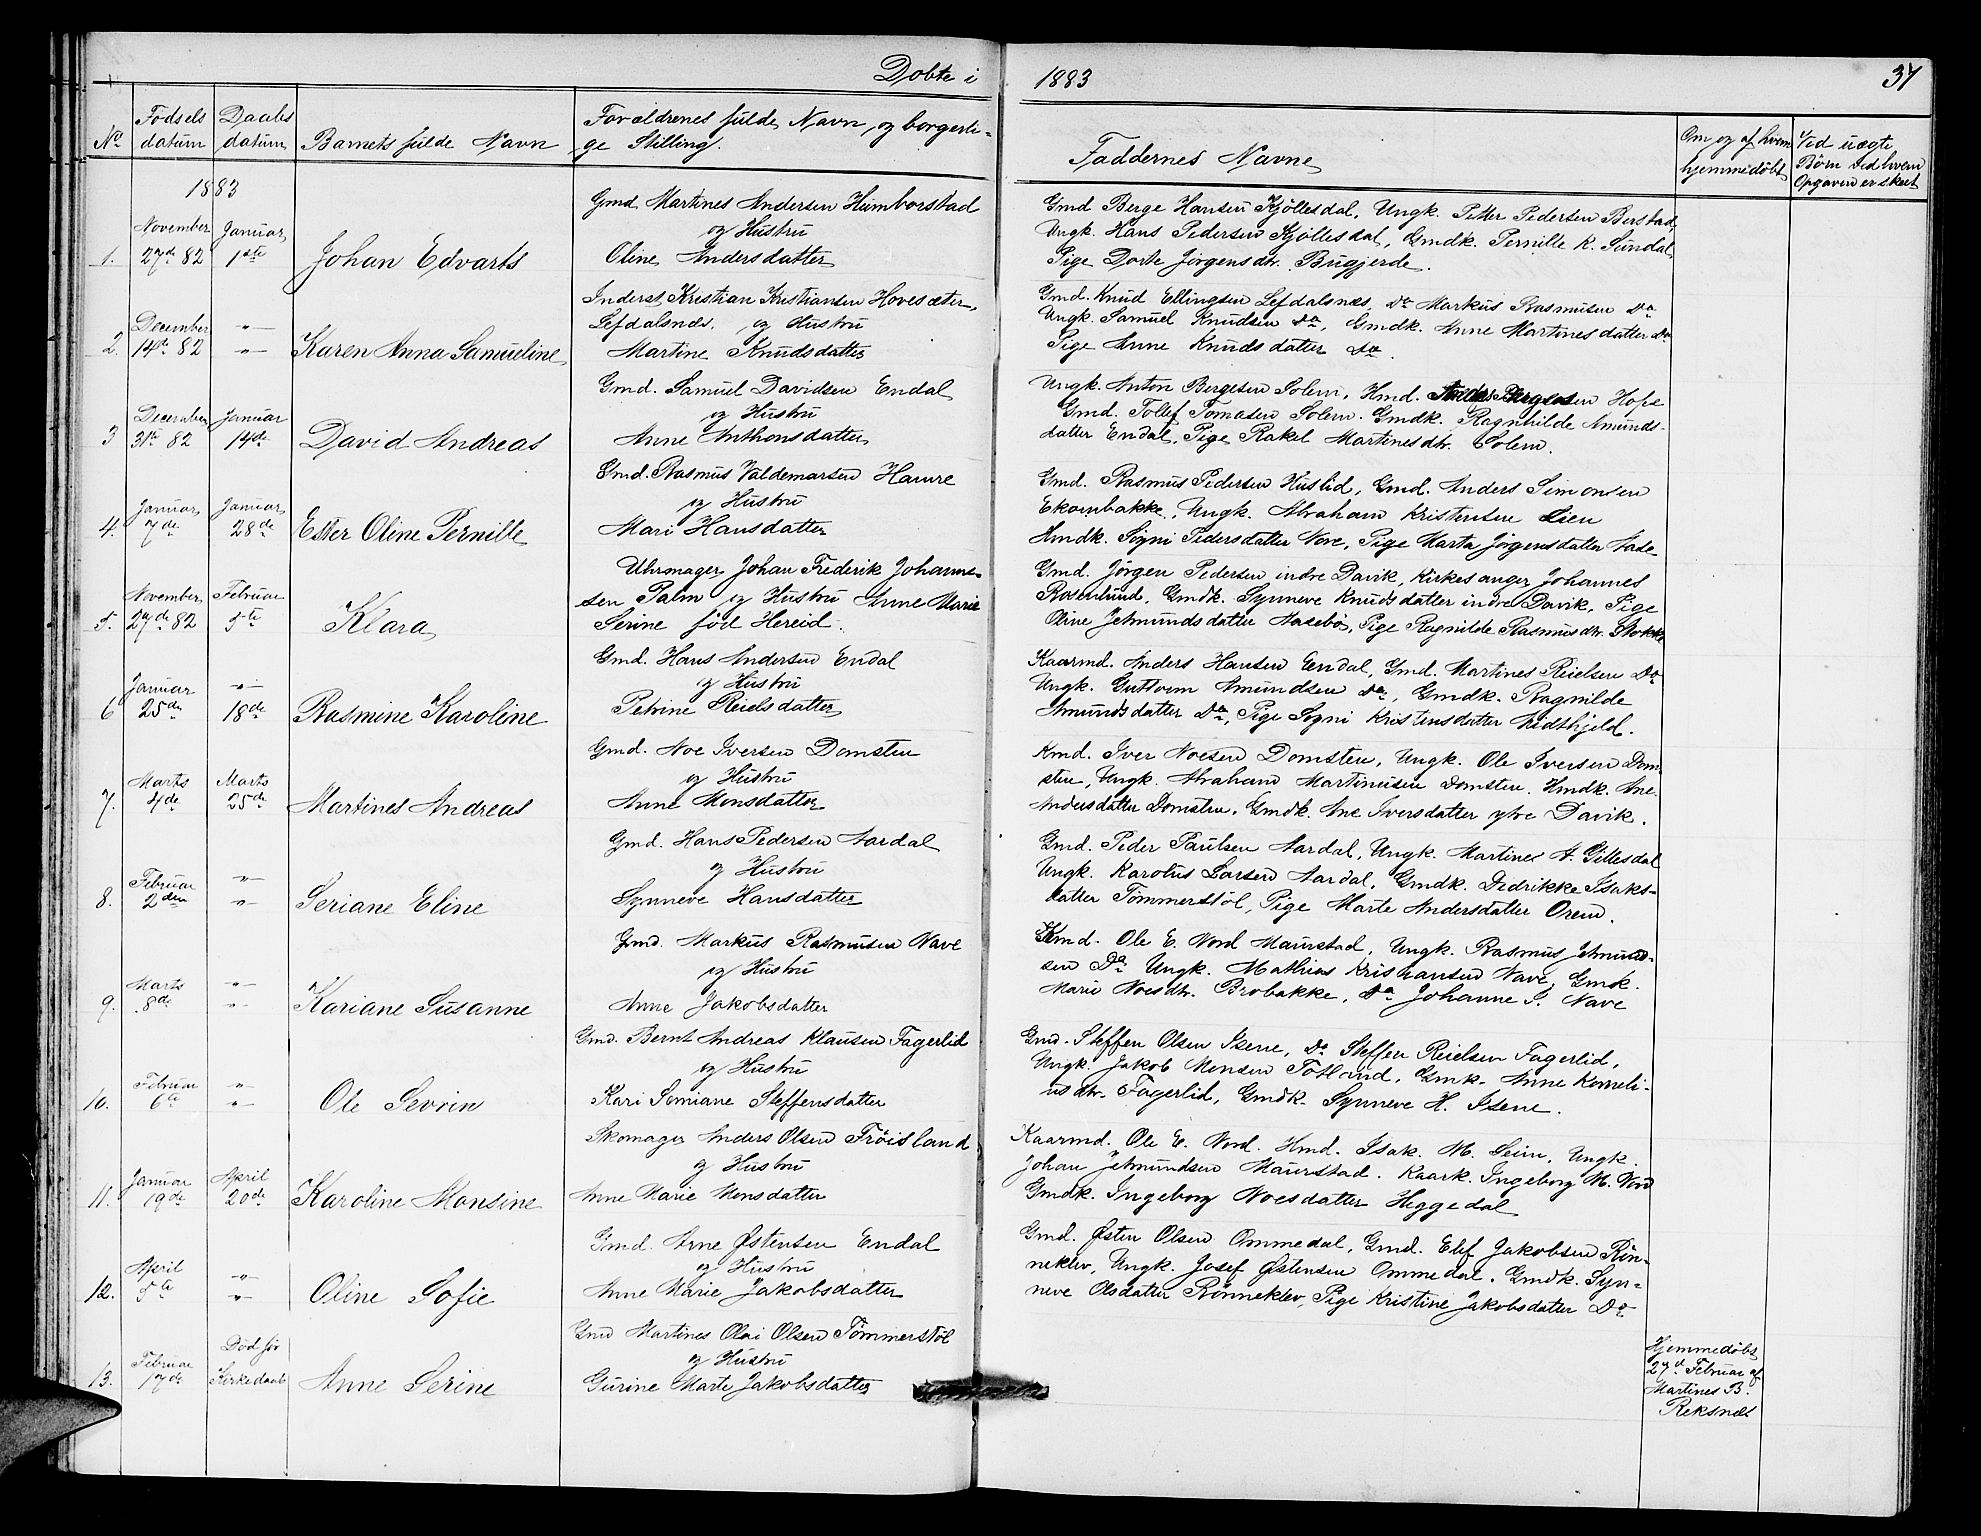 Døbte i 1883
37
No
Fødsels datum
Daabs datum
Barnets fulde Navn
Forældrenes fulde Navn, og borgerli-
ge Stilling.
Faddernes Navne
Om og af hvem
hjemmedöbt
Ved uægte
Börn ved hvem
Opgaven er skeet
1883
1.
November
27de 82
Januar
1ste
Johan Edvarts
Gmd. Martines Andersen Humborstad
og Hustru
Oline Andersdatter
Gmd Berge Hansen Kjöllesdal, Ungk. Petter Pedersen Berstad,
Ungk. Hans Pedersen Kjöllesdal, Gmdk. Pernille K. Sundal,
Pige Dorte Jörgensdtr. Bugjerde.
2.
December
14de 82
-"-
-"-
Karen Anna Samueline
Inderst, Kristian Kristiansen Hovesæter,
Lefdalsnes. og Hustru
Martine Knudsdatter
Gmd. Knud Ellingsen Lefdalsnes, Do Markus Rasmusen Do
Ungk. Samuel Knudsen Do, Gmdk. Anne Martinesdatter Do
Pige Anne Knudsdatter Do.
3
December
31te 82
Januar
14de
David Andreas
Gmd. Samuel Davidsen Endal
og Hustru
Anne Anthonsdatter
Ungk. Anton Bergesen Solem, Hmd. Hope
Gmd. Tollef Tomasen Solem. Gmdk. Ragnhilde Amunds-
datter Endal, Pige Rakel Martinesdtr. Solem.
4.
Januar
7de
Januar
28de
Ester Oline Pernille
Gmd. Rasmus Valdemarsen Hamre
og Hustru
Mari Hansdatter
Gmd. Rasmus Pedersen Huslid, Gmd. Anders Simonsen
Ekornbakke, Ungk. Abraham Kristensen Lien
Hmdk. Signi Pedersdatter Nore, Pige Marta Jörgensdatter
5.
November
27de 82
Februar
5te
Klara
Uhrmager Johan Frederik Johanne-
sen Palm og Hustru Anne Marie
Serine född Hereid.
Gmd. Jörgen Pedersen indre Davik, Kirkesanger Johannes
Rosenlund, Gmdk. Synneve Knudsdatter indre Davik, Pige
Oline Jetmundsdatter Aasebö, Pige Ragnilde Rasmusdtr. Stokke
6
Januar
25de
-"-
18de
Rasmine Karoline
Gmd. Hans Andersen Endal
og Hustru
Petrine Reielsdatter
Kaarmd. Anders Hansen Endal, Gmd. Martines Reielsen Do
Ungk. Guttorm Amundsen Do, Gmdk. Ragnilde
Amundsdatter Do, Pige Sogni Kristensdatter Midthjeld.
7.
Marts
4de
Marts
25de
Martines Andreas
Gmd. Noe Iversen Domsten
og Hustru
Anne Monsdatter
Kmd. Iver Noesen Domsten, Ungk. Ole Iversen Dom-
sten, Ungk. Abraham Martinusen Domsten. Hmdk. Ane
Andersdatter Domsten. Gmdk. Ane Iversdatter ytre Davik.
8.
Februar
2den
-"-
-"-
Seriane Eline
Gmd. Hans Pedersen Aardal
og Hustru
Synneve Hansdatter
Gmd. Peder Paulsen Aardal, Ungk. Martines A. Gillesdal
Ungk. Karolus Larsen Aardal, Gmdk. Didrikke Isaks-
datter Tömmerstöl, Pige Marte Andersdatter Orem.
9.
Marts
8de
-"-
-"-
Kariane Susanne
Gmd. Markus Rasmusen Nave
og Hustru
Anne Jakobsdatter
Kmd. Ole E. Nord Maurstad, Ungk. Rasmus Jetmund-
sen Do Ungk. Mathias Kristiansen Nave, Gmk.
Marie Noesdtr. Brobakke, Do Johanne S. Nave
10.
Februar
6te
-"-
-"-
Ole Sevrin
Gmd. Bernt Andreas Klausen Fagerlid
og Hustru
Kari Semiane Steffensdatter
Gmd. Steffen Olsen Isene, Do Steffen Reielsen Fagerlid,
Ungk. Jakob Monsen Totland, Gmk. Anne Korneli-
usdtr. Fagerlid, Gmdk. Synneve H. Isene.
11.
Januar
19de
April
20de
Karoline Monsine
Skomager Anders Olsen Fröisland
og Hustru
Anne Marie Monsdatter
Kaarmd. Ole E. Nord. Hmd. Isak. M. Seim, Ungk.
Johan Jetmundsen Maurstad. Kaark. Ingeborg M. Nord
Gmdk. Ingeborg Noesdatter Heggedal
12.
April
5te
-"-
-"-
Oline Sofie
Gmd. Arne Østensen Endal
og Hustru
Anne Marie Jakobsdatter
Gmd. Østen Olsen Ommedal, Gmd. Elef Jakobsen Rön-
neklev, Ungk. Josef Østensen Ommedal. Gmdk. Syn-
neve Olsdatter Rönneklev, Pige Kristine Jakobsdatter Do
13.
Februar
17de
Död för
Kirkedaab
Anne Serine
Gmd Martines Olai Olsen Tömmerstöl
og Hustru
Gurine Marte Jakobsdatter
Hjemmedöbt
27d Februar af
Martines B.
Reksnes